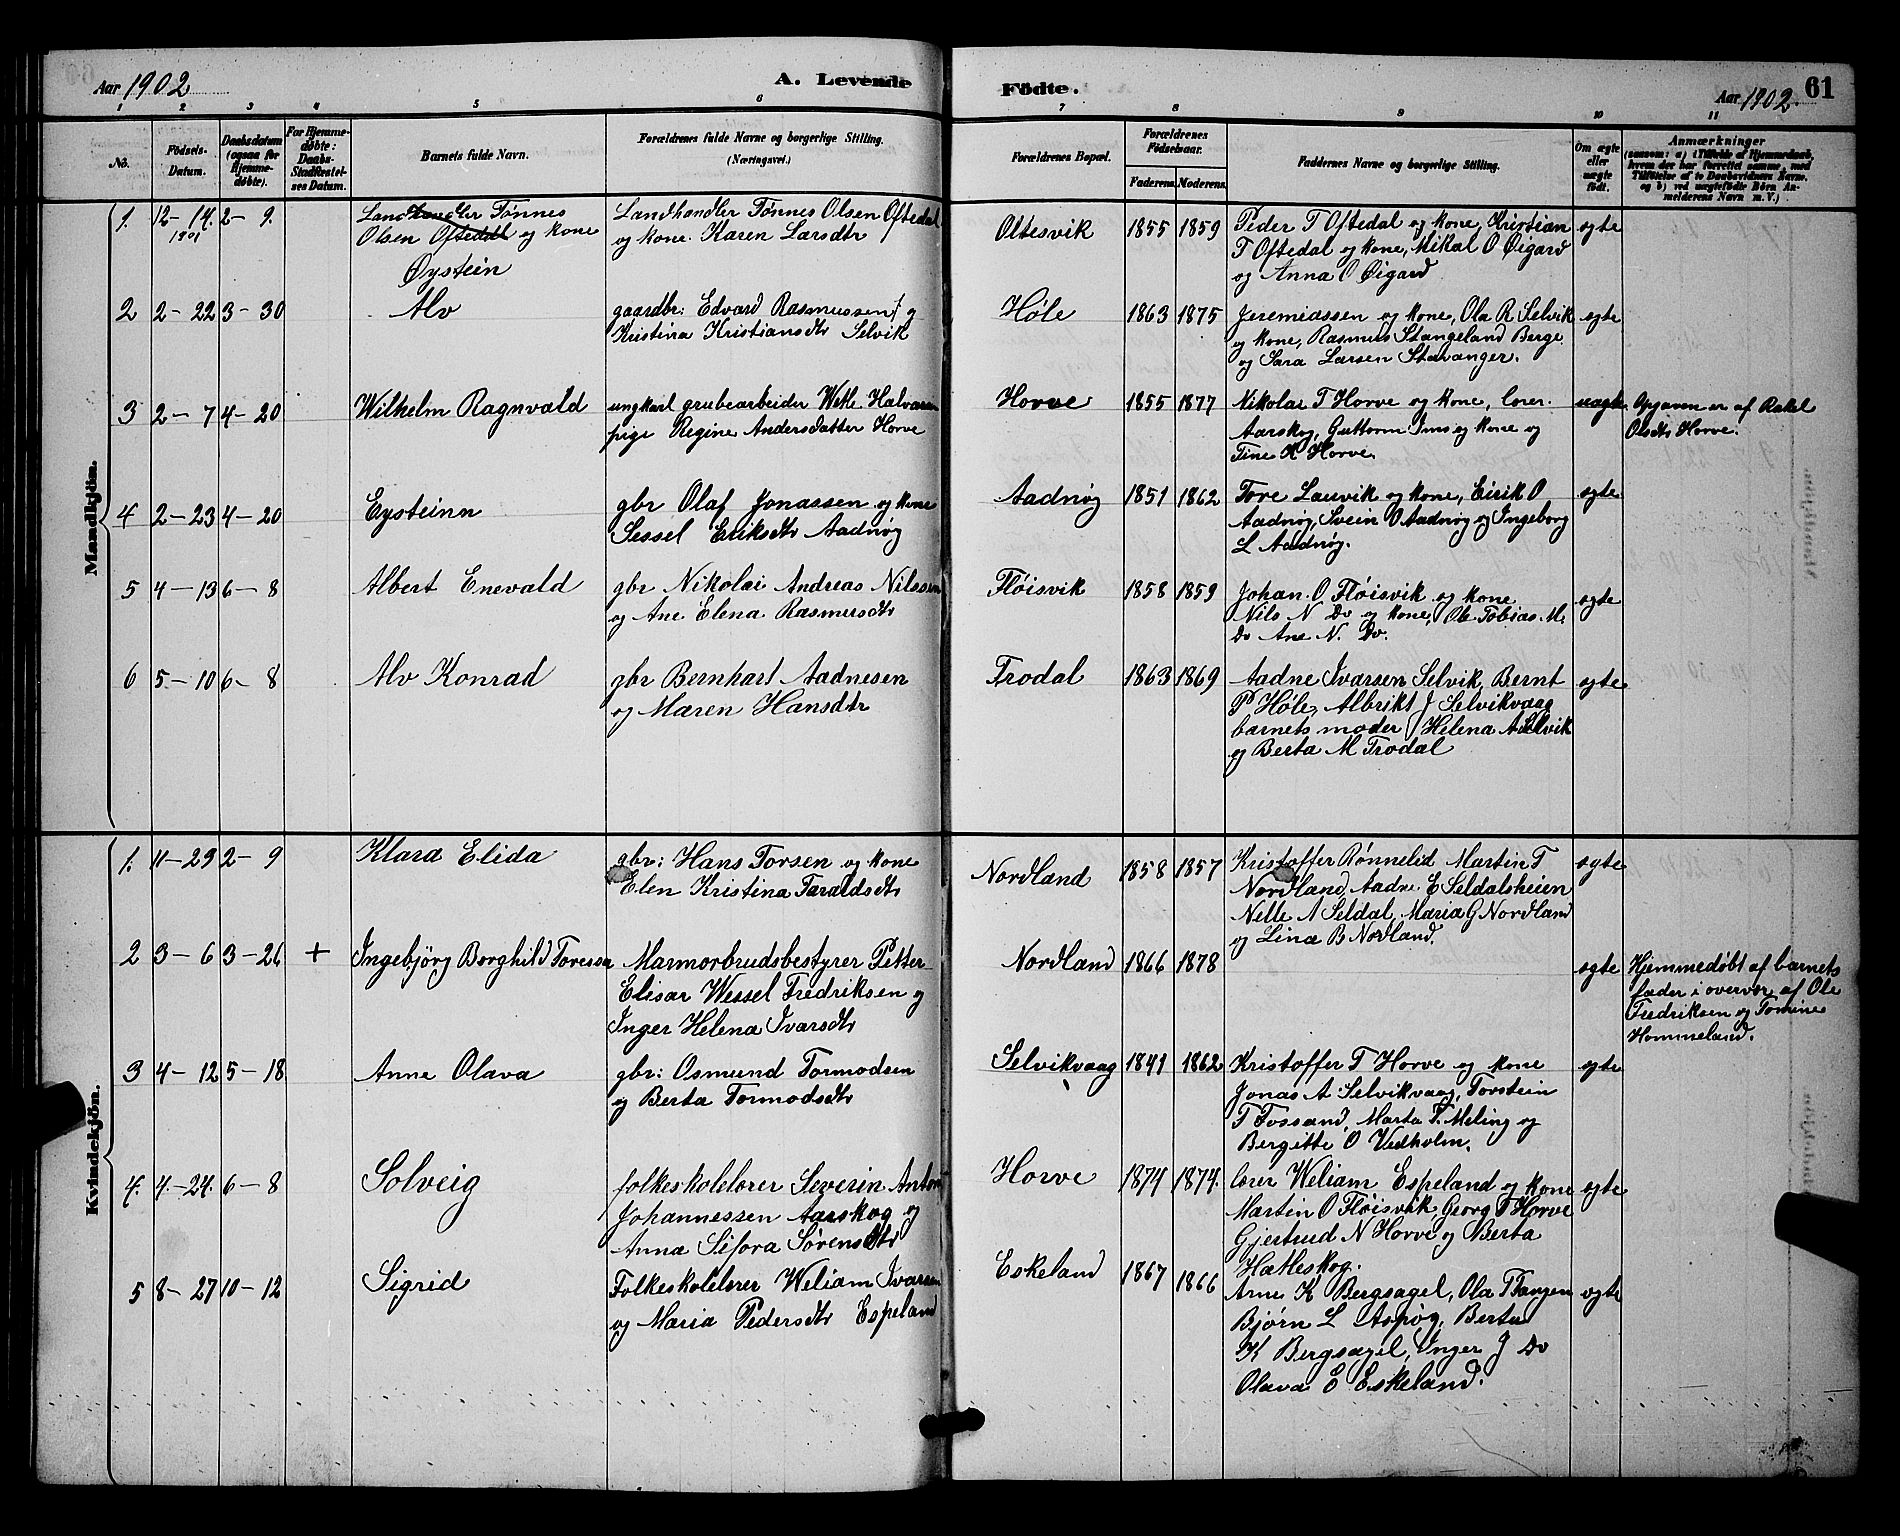 Aar 1902
A. Levende
Fødte.
Aar 1902.
61
1 2 3 4 5 6 7 8 9 10 11
No.
Fødsels-
Datum.
Daabsdatum
(ogsaa for
Hjemme-
døbte).
For Hjemme-
døbte:
Daabs-
Stadfæstel-
ses Datum.
Barnets fulde Navn.
Forældrenes fulde Navne og borgerlige Stilling.
(Næringsvei.)
Forældrenes Bopæl.
Forældrenes
Fødselsaar.
Faderens. Moderens.
Faddernes Navne og borgerlige Stilling.
Om ægte
eller
uægte
født.
Anmærkninger
(saasom: a) i Tilfælde af Hjemmedaab,
hvem der har forrettet samme, med
Tilføielse af to Daabsvidners Navne,
og b) ved uægtefødte Børn An-
melderens Navn m. V.)
Mandkjøn.
1. 12-14. 2-9.
1901
Landhandler Tønnes
Olsen Oftedal og kone
Øystein
Landhandler Tønnes Olsen Oftedal
og kone Karen Larsdtr
Oltesvik 1855 1859
Peder T Oftedal og kone, Kristian
T Oftedal og kone, Mikal O Øigard
og Anna O Øigard
egte
2 2-22 3-30
Alv
gaardbr: Edvard Rasmussen og
Kristina Kristiansdtr Selvik
Høle 1863 1875
Jeremiassen og kone, Ola R Selvik
og kone, Rasmus Stangeland Berge
og Sara Larsen Stavanger.
egte
3 2-7 4-20
Wilhelm Ragnvald
ungkarl grubearbeider Wetle Halvorsen
pige Regine Andersdatter Horve
Horve 1855 1877
Nikolai T Horve og kone, lærer
Aarskog, Guttorm Ims og kone og
Tine K Horve.
uegte
Opgaven er af Rakel
Olsdtr Horve.
4 2-23 4-20
Eysteinn
gbr Olaf Jonassen og kone
Sessel Eriksdtr Aadnøy
Aadnøy 1851 1862
Tore Lauvik og kone, Eirik O
Aadnøy, Svein O Aadnøy og Ingeborg
L Aadnøy.
egte
5 4-13 6-8
Albert Enevald
gbr Nikolai Andreas Nilssen
og Ane Elena Rasmusdtr
Fløisvik 1858 1859
Johan O Fløisvik og kone
Nils N Do og kone, Ole Tobias M.
Do Ane N. Do.
egte
6 5-10 6-8
Alv Konrad
gbr Bernhart Aadnesen
og Maren Hansdtr
Trodal 1863 1869
Aadne Ivarsen Selvik, Bernt
P Høle, Albrikt J Selvikvaag
barnets moder, Helena A Selvik
og Berta M Trodal
egte
Kvindekjøn.
1. 11-29 2-9
Klara Elida
gbr: Hans Torsen og kone
Elen Kristina Taraldsdtr
Nordland 1858 1857
Kristoffer Rønnelid Martin T
Nordland, Aadne E Seldalsheien
Nelle A Seldal, Maria G Nordland
og Lina B Nordland.
egte
2 3-6 3-26 +
Ingebjørg Borghild Toresea
Marmorbrudsbestyrer Pitter
Elisar Wessel Fredriksen og
Inger Helena Ivarsdtr
Nordland 1866 1878
egte
Hjemmedøbt af barnets
fader i overvær af Ole
Fredriksen og Tomine
Hommeland.
3 4-12 5-18
Anne Olava
gbr: Osmund Tormodsen
og Berta Tormodsdtr
Selvikvaag 1841 1862
Kristoffer T Horve og kone
Jonas A Selvikvaag, Torstein
T Fossand, Marta T. Meling og
Bergitte O Vedholm.
egte
4. 4-24. 6-8
Solveig
folkeskolelærer Severin Anton
Johannessen Aarskog og
Anna Sifora Sørensdtr
Horve 1874 1874.
lærer Weliam Espeland og kone
Martin O Fløisvik, Georg T Horve
Gjertrud N Horve og Berta
Hatleskog.
egte
5 8-27 10-12
Sigrid
Folkeskolelærer Weliam Ivarsen
og Maria Pedersdtr Espeland
Eskeland 1867 1866
Arne K Bergsagel, Ola T Tangen
Bjørn L Aspøy, Berta
K Bergsagel, Inger J Do
Olava E Eskeland.
egte